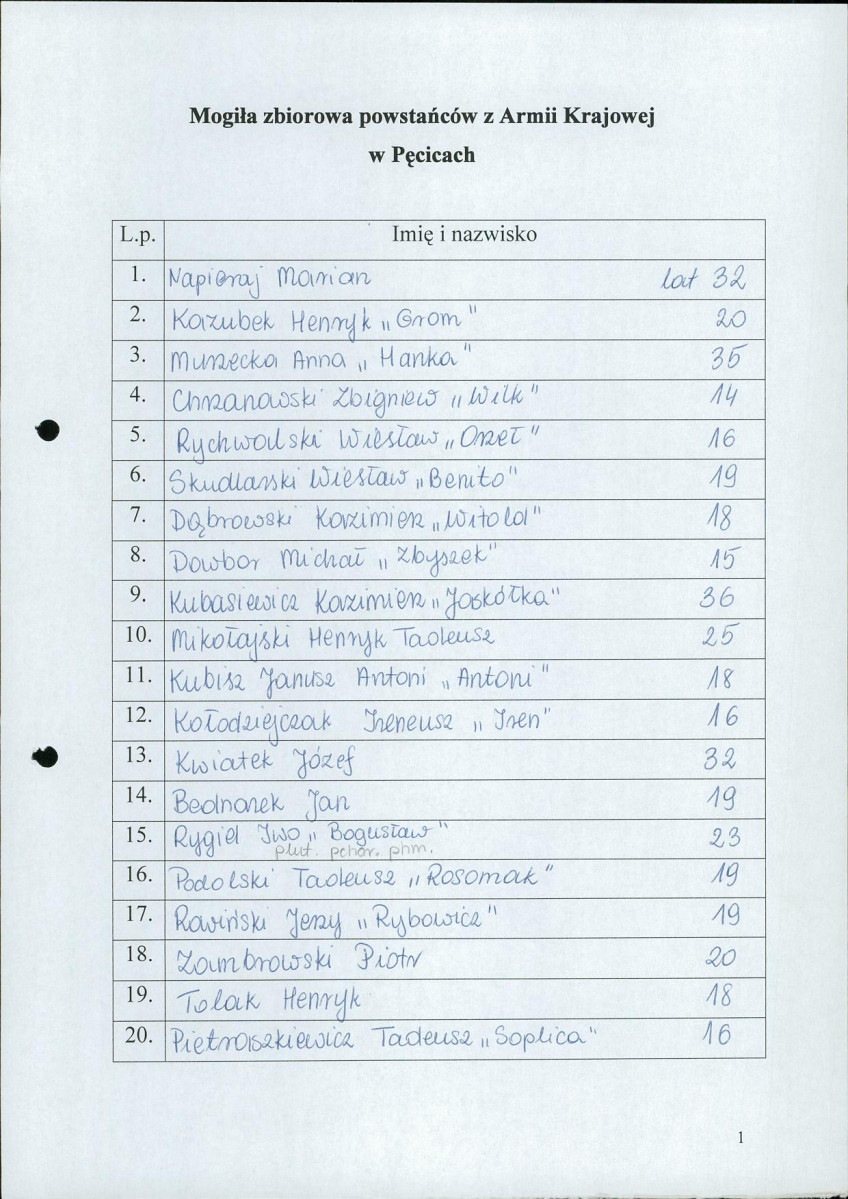 Mogiła zbiorowa powstańców z Armii Krajowej
w Pęcicach
L.p. Imię i nazwisko
1. Napieraj Marian lat 32
2. Kazubek Henryk „Grom" 20
3. Murzecka Anna „Hanka" 35
4. Chrzanowski Zbigniew „Wilk" 14
5. Rychwolski Wiesław „Orzeł" 16
6. Skudlarski Wiesław „Benito" 19
7. Dąbrowski Kazimierz „Witold" 18
8. Dowbor Michał „Zbyszek" 15
9. Kubasiewicz Kazimierz „Jaskółka" 36
10. Mikołajski Henryk Tadeusz 25
11. Kubisz Janusz Antoni „Antoni" 18
12. Kołodziejczak Ireneusz „Iren" 16
13. Kwiatek Józef 32
14. Bednarek Jan 19
15. Rygiel Iwo „Bogusław" 23
plut. pchor. phm.
16. Podolski Tadeusz „Rosomak" 19
17. Rawiński Jerzy „Rybowicz" 19
18. Zambrowski Piotr 20
19. Tolak Henryk 18
20. Pietraszkiewicz Tadeusz „Soplica" 16
1